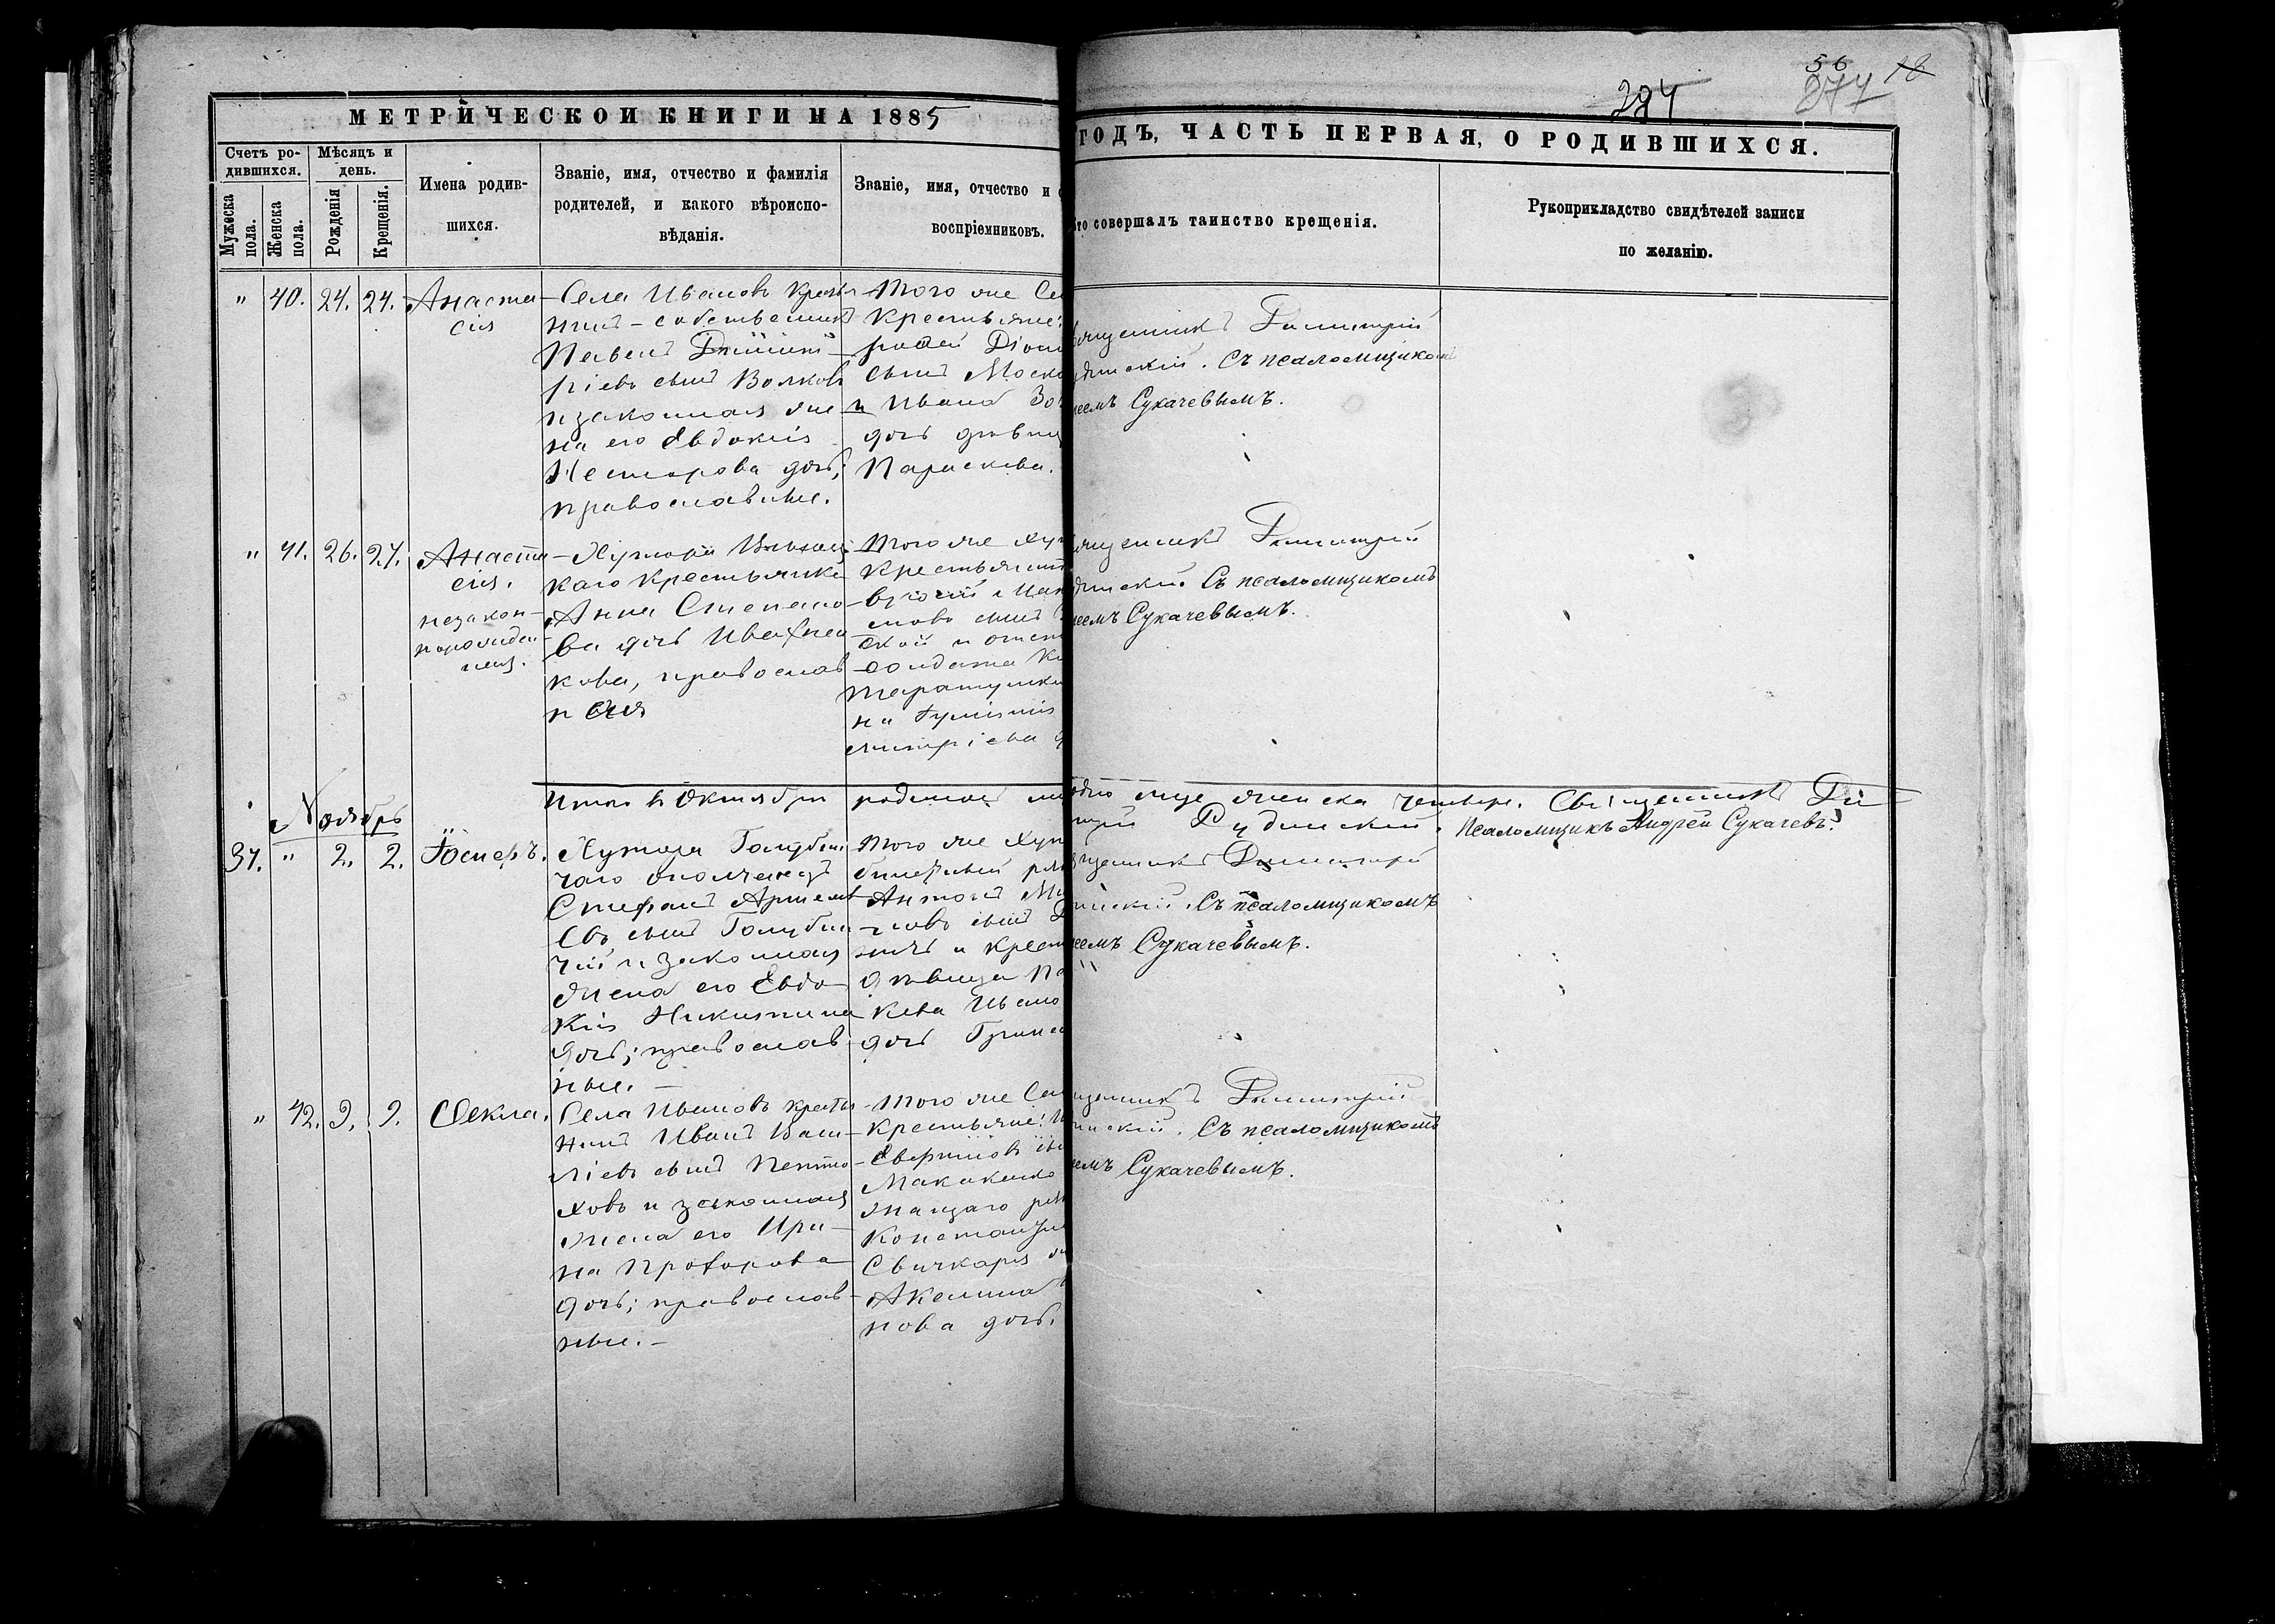 56 18
294 277
МЕТРИЧЕСКОЙ КНИГИ НА 1885
ГОДЪ, ЧАСТЬ ПЕРВАЯ, О РОДИВШИХСЯ.
Счетъ ро-
дившихся.
Мѣсяцъ и
день.
Мужеска
пола.
Женска
пола.
Рожденія
Крещенія.
Имена родив-
шихся.
Званіе, имя, отчество и фамилія
родителей, и какого вѣроиспо-
вѣданія.
Званіе, имя, отчество и
воспріемниковъ.
то совершалъ таинство крещенія.
Рукоприкладство свидѣтелей записи
по желанію.
" 40. 24. 24.
Анаста
сія
Села Ивановъ крестья
нинъ-собственникъ
Павелъ Димит
ріевъ сынъ Волковъ
и законная же
на его Евдокія
Несторова дочь;
православные.
Того же Се
крестьяне:
сынъ Моск
и Ивана
дочь дѣвиц
Параскева.
ященникъ Димитрій
динскій. Съ псаломщикомъ
еемъ Сукачевымъ.
" 41. 26. 27.
Анаста
сія.
незакон-
норожден-
ная.
Хутора
каго крестьянка
Анна Степано
ва дочь Ивахнен
кова, православ
ная
Того же хут
крестьянинъ
новъ сынъ
ской и
солдата
на
митріева
ященникъ Димитрій
динскій. Съ псаломщикомъ
еемъ Сукачевымъ.
Итого въ Октябрѣ родилось
одно лице женска четыре. Священникъ Ди
трій Рудинскій. Псаломщикъ Андрей Сукачевъ.
Ноябрь
37. " 2. 2.
Іосифъ.
Хутора Голубин
чаго ополченецъ
Стефанъ Артемі
евъ сынъ Голубни
чій и законная
жена его Евдо
кія Никитина
дочь; православ
ные.
Того же Хут
Антоній М
ловъ сынъ
и крест
дѣвица Па
кева Ивано
дочь Грин
щенникъ Димитрій
инскій. Съ псаломщикомъ
еемъ Сукачевымъ.
" 42. 9. 9.
Ѳекла.
Села Ивановъ крестья
нинъ Иванъ Васи
ліевъ сынъ Пенто
ховъ и законная
жена его Ири
на Прохорова
дочь; православ
ные.
Того же Се
крестьяне:
Макакенко
Константин
Свичкаря
Акелина
нова дочь.
щенникъ Димитрій
инскій. Съ псаломщикомъ
емъ Сукачевымъ.